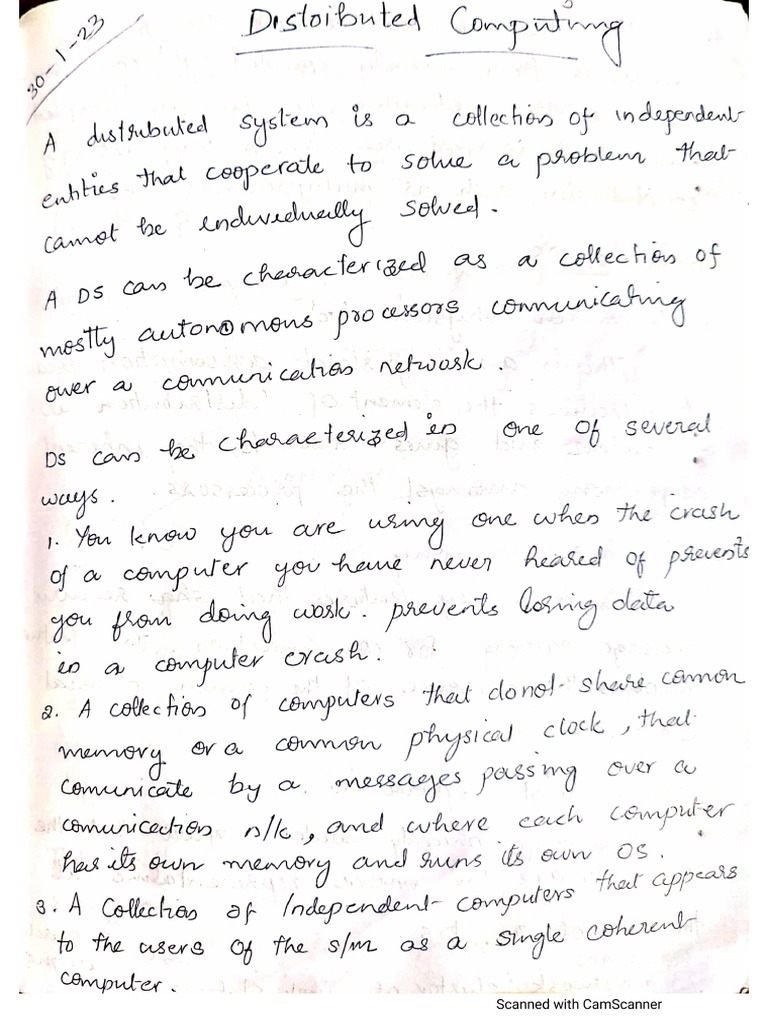 30-1-23
Distributed Computing
A distributed system is a collection of independent
entities that cooperate to solve a problem that
cannot be individually solved.
A DS can be characterized as a collection of
mostly autonomous processors communicating
over a communication network.
DS can be characterized in one of several
ways.
1. You know you are using one when the crash
of a computer you have never heared of prevents
you from doing work. prevents losing data
in a computer crash.
2. A collection of computers that do not share common
memory or a common physical clock, that
comunicate by a messages passing over a
comunication n/k, and where each computer
has its own memory and runs its own OS.
3. A Collection of Independent computers that appears
to the users of the s/m as a single coherent
computer.
Scanned with CamScanner